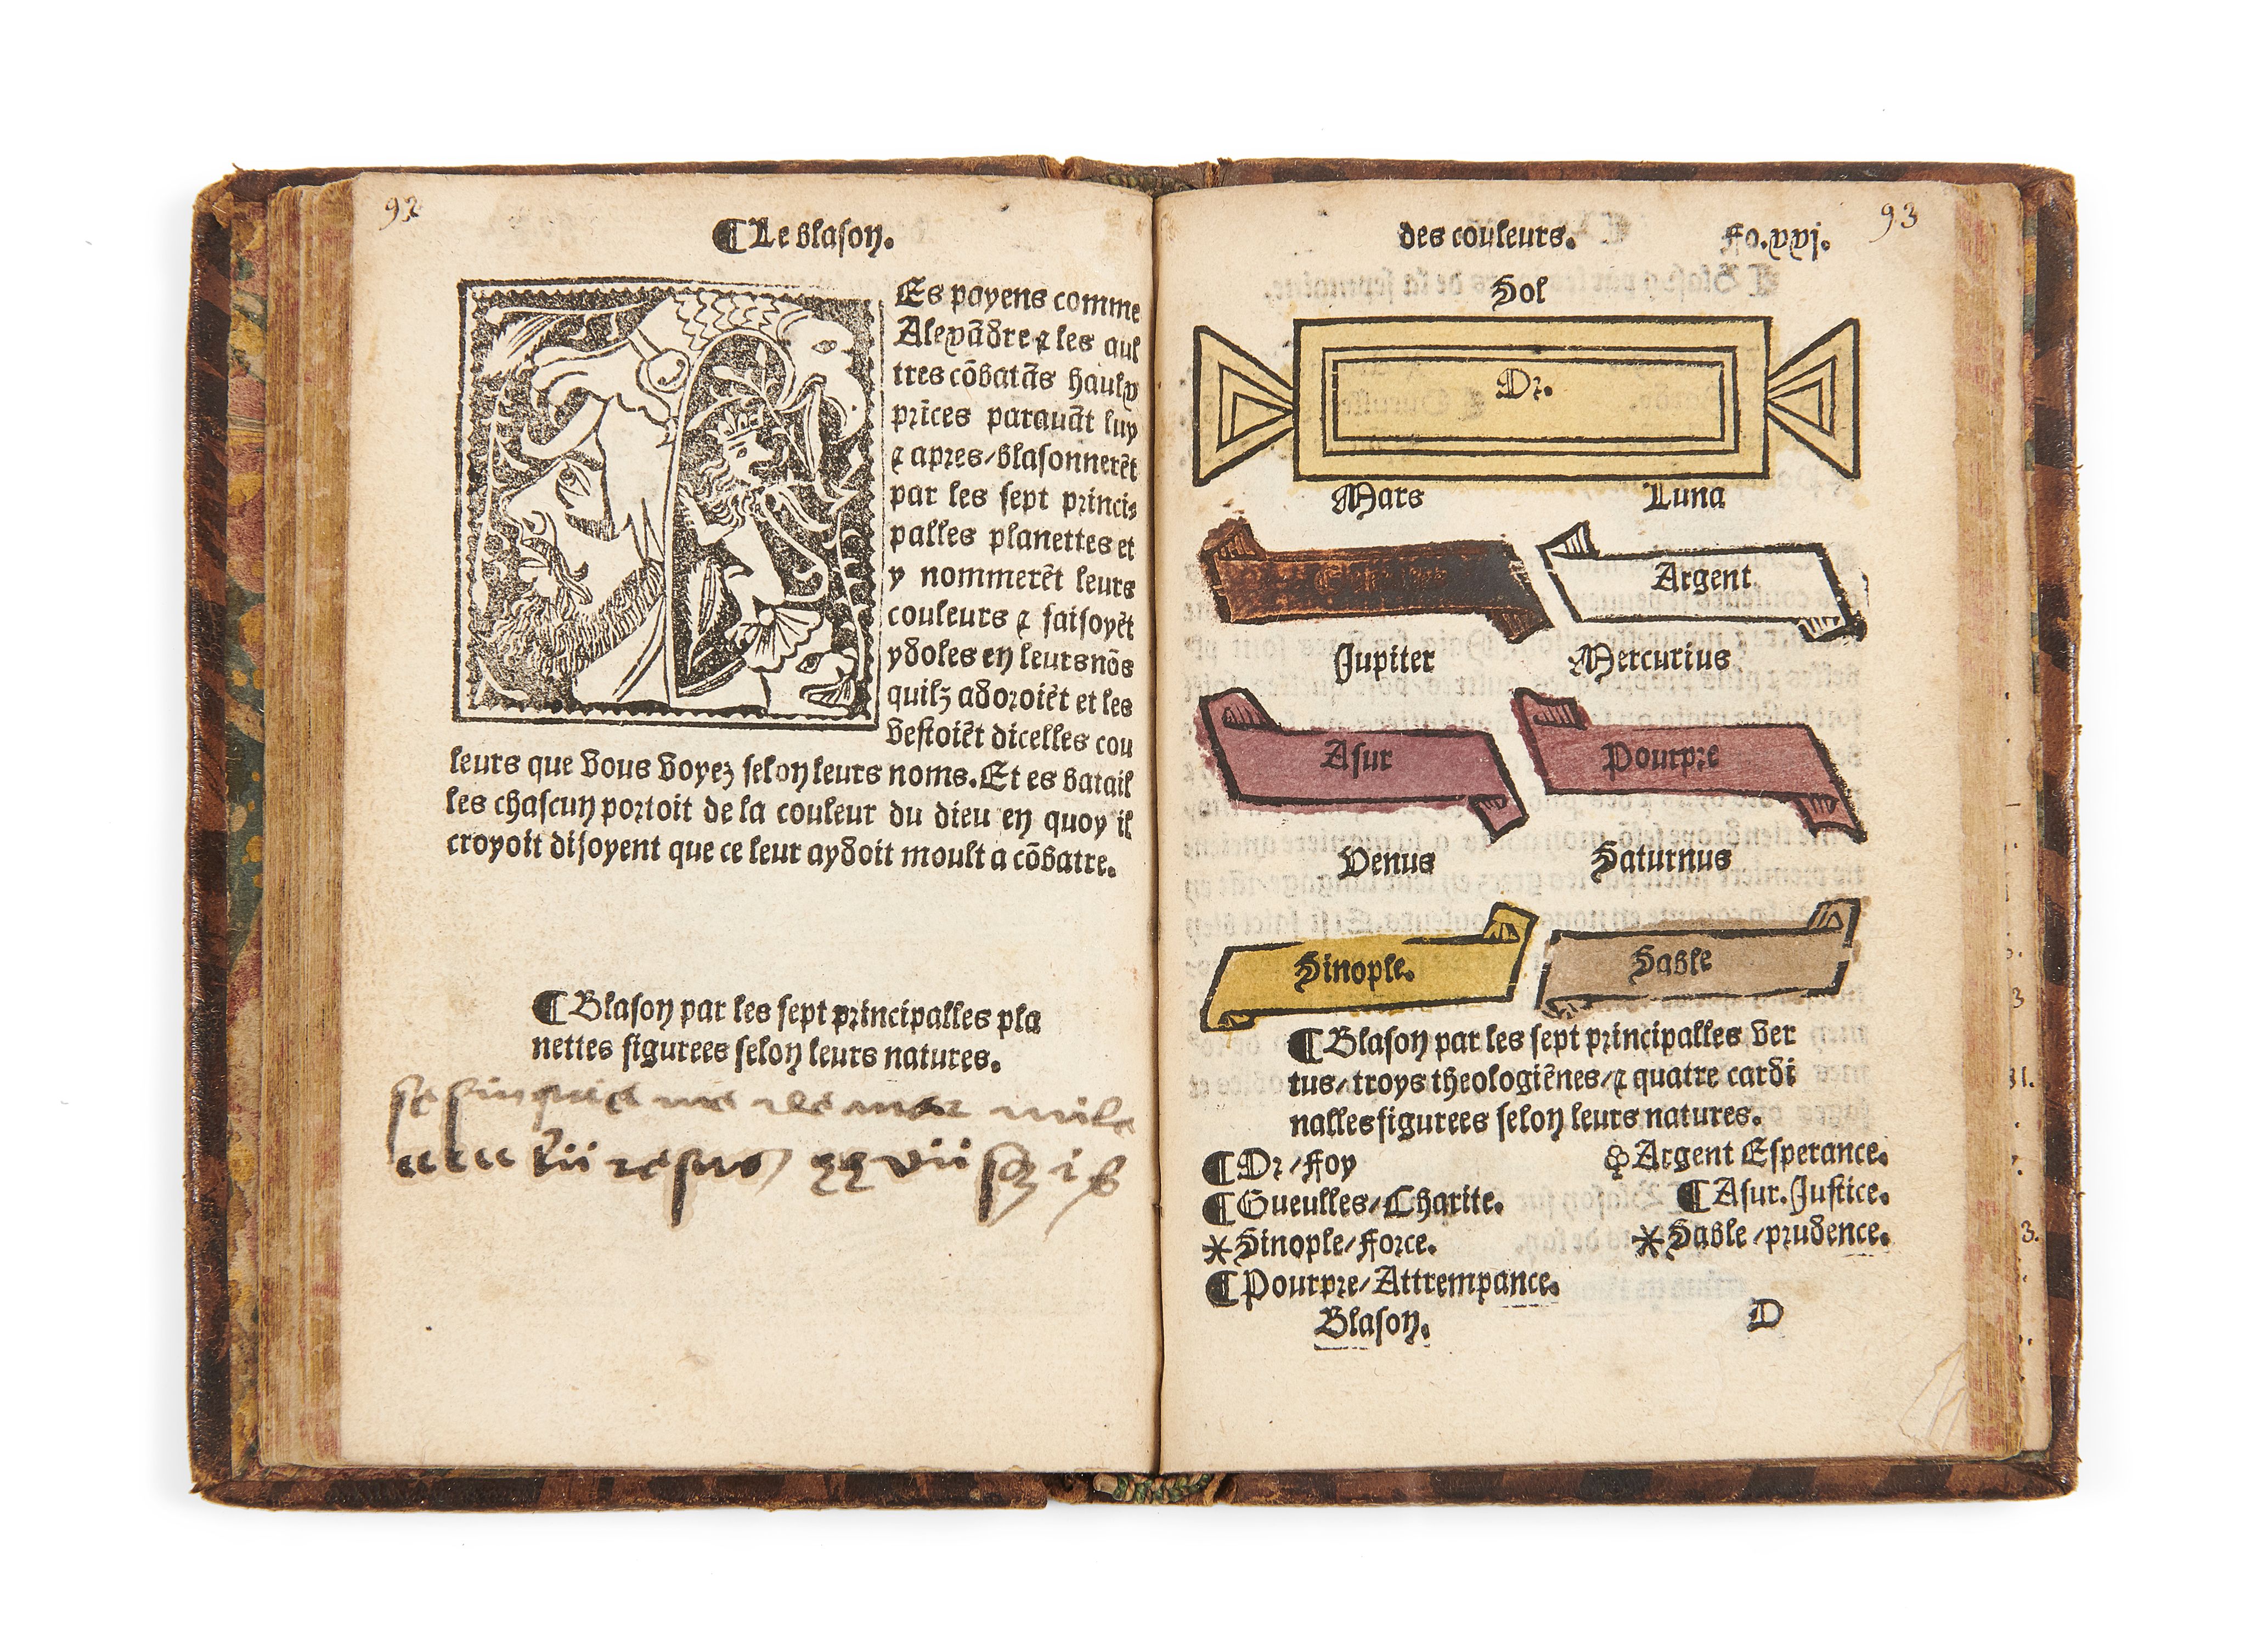 92
¶ Le blason.
Es payens comme
Alexãdre ⁊ les aul
tres cõbatãs haulx
prĩces parauãt luy
⁊ apres/blasonnerẽt
par les sept princi-
palles planettes et
y nommerẽt leurs
couleurs ⁊ faisoyẽt
ydoles en leurs nõs
quilz adoroiẽt et les
vestoiẽt dicelles cou
leurs que vous voyez selon leurs noms. Et es batail
les chascun portoit de la couleur du dieu en quoy il
croyoit disoyent que ce leur aydoit moult a cõbatre.
¶ Blason par les sept principalles pla
nettes figurees selon leurs natures.
93
des couleurs. Fo.xxj.
Sol
Or.
Mars Luna
Argent
Jupiter Mercurius
Asur Pourpre
Venus Saturnus
Sinople. Sable
¶ Blason par les sept principalles ver
tus/troys theologiẽnes/⁊ quatre cardi
nalles figurees selon leurs natures.
¶ Or/Foy Argent Esperance.
¶ Gueulles/Charite. ¶ Asur.Justice.
* Sinople/Force. * Sable/prudence.
¶ Pourpre/Attrempance.
Blason. D